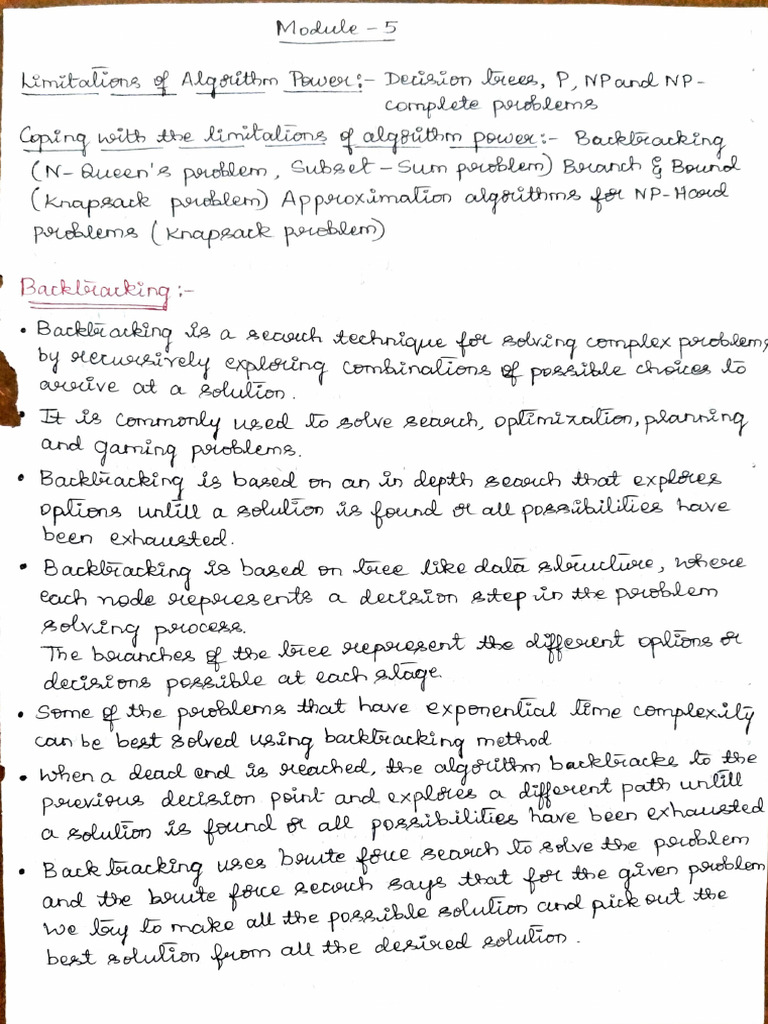 Module - 5
Limitations of Algorithm Power:- Decision trees, P, NP and NP-
complete problems
Coping with the limitations of algorithm power:- Backtracking
(N-Queen's problem, Subset-Sum problem) Branch & Bound
(Knapsack problem) Approximation algorithms for NP-Hard
problems (Knapsack problem)
Backtracking:-
• Backtracking is a search technique for solving complex problems
by recursively exploring combinations of possible choices to
arrive at a solution.
• It is commonly used to solve search, optimization, planning
and gaming problems.
• Backtracking is based on an in depth search that explores
options untill a solution is found or all possibilities have
been exhausted.
• Backtracking is based on tree like data structure, where
each node represents a decision step in the problem
solving process.
The branches of the tree represent the different options or
decisions possible at each stage.
• Some of the problems that have exponential time complexity
can be best solved using backtracking method
• When a dead end is reached, the algorithm backtracke to the
previous decision point and explores a different path untill
a solution is found or all possibilities have been exhausted
• Back tracking uses brute force search to solve the problem
and the brute force search says that for the given problem
we try to make all the possible solution and pick out the
best solution from all the desired solution.